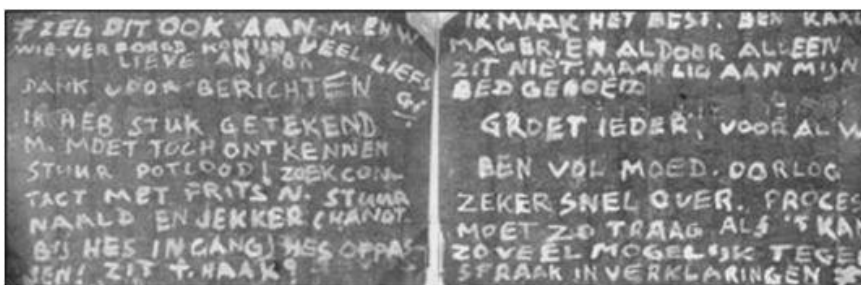 ZEG DIT OOK AAN M EN W
WIE VERBORGD KONIJN VEEL LIEFS
LIEVE AN,
G!!
DANK VOOR BERICHTEN
IK HEB STUK GETEKEND
M. MOET TOCH ONTKENNEN
STUUR POTLOOD! ZOEK CON-
TACT MET FRITS N. STUUR
NAALD EN JEKKER (HANDT.
BIJ HES INGANG) HES OPPAS-
SEN! ZIT T. HAAK?
IK MAAK HET BEST. BEN KAAL
MAGER, EN ALDOOR ALLEEN
ZIT NIET. MAAR LIG AAN MIJN
BED GEBOEID
GROET IEDER, VOOR AL V
BEN VOL MOED. OORLOG
ZEKER SNEL OVER. PROCES
MOET ZO TRAAG ALS 'T KAN
ZOVEEL MOGELIJK TEGE
SPRAAK IN VERKLARINGEN